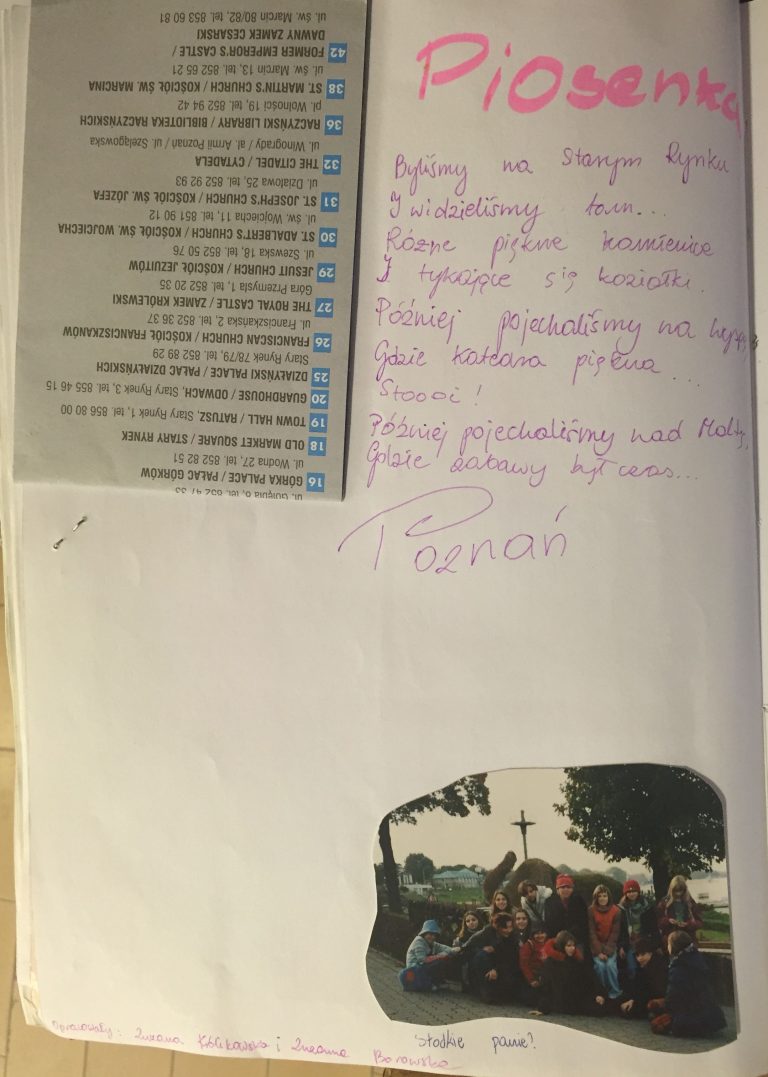 16 GÓRKA PALACE / PAŁAC GÓRKÓW
ul. Wodna 27, tel. 852 82 51
18 OLD MARKET SQUARE / STARY RYNEK
19 TOWN HALL / RATUSZ, Stary Rynek 1, tel. 856 80 00
20 GUARDHOUSE / ODWACH, Stary Rynek 3, tel. 855 46 15
25 DZIAŁYŃSKI PALACE / PAŁAC DZIAŁYŃSKICH
Stary Rynek 78/79, tel. 852 89 29
26 FRANCISCAN CHURCH / KOŚCIÓŁ FRANCISZKANÓW
ul. Franciszkańska 2, tel. 852 36 37
27 THE ROYAL CASTLE / ZAMEK KRÓLEWSKI
Góra Przemysła 1, tel. 852 20 35
29 JESUIT CHURCH / KOŚCIÓŁ JEZUITÓW
ul. Szewska 18, tel. 852 50 76
30 ST. ADALBERT'S CHURCH / KOŚCIÓŁ ŚW. WOJCIECHA
ul. św. Wojciecha 11, tel. 851 90 12
31 ST. JOSEPH'S CHURCH / KOŚCIÓŁ ŚW. JÓZEFA
ul. Działowa 25, tel. 852 92 93
32 THE CITADEL / CYTADELA
ul. Winogrady / al. Armii Poznań / ul. Szelągowska
36 RACZYŃSKI LIBRARY / BIBLIOTEKA RACZYŃSKICH
pl. Wolności 19, tel. 852 94 42
38 ST. MARTIN'S CHURCH / KOŚCIÓŁ ŚW. MARCINA
ul. św. Marcin 13, tel. 852 65 21
42 FORMER EMPEROR'S CASTLE /
DAWNY ZAMEK CESARSKI
ul. św. Marcin 80/82, tel. 853 60 81
Piosenka
Byliśmy na Starym Rynku
I widzieliśmy tam...
Różne piękne kamienice
I tykające się koziołki.
Później pojechaliśmy na
Gdzie katedra piękna ...
Stoooi!
Później pojechaliśmy nad Maltę,
Gdzie zabawy był czas...
Poznań
Słodkie panie?
Opracowały: Zuzanna i Zuzanna Borowska